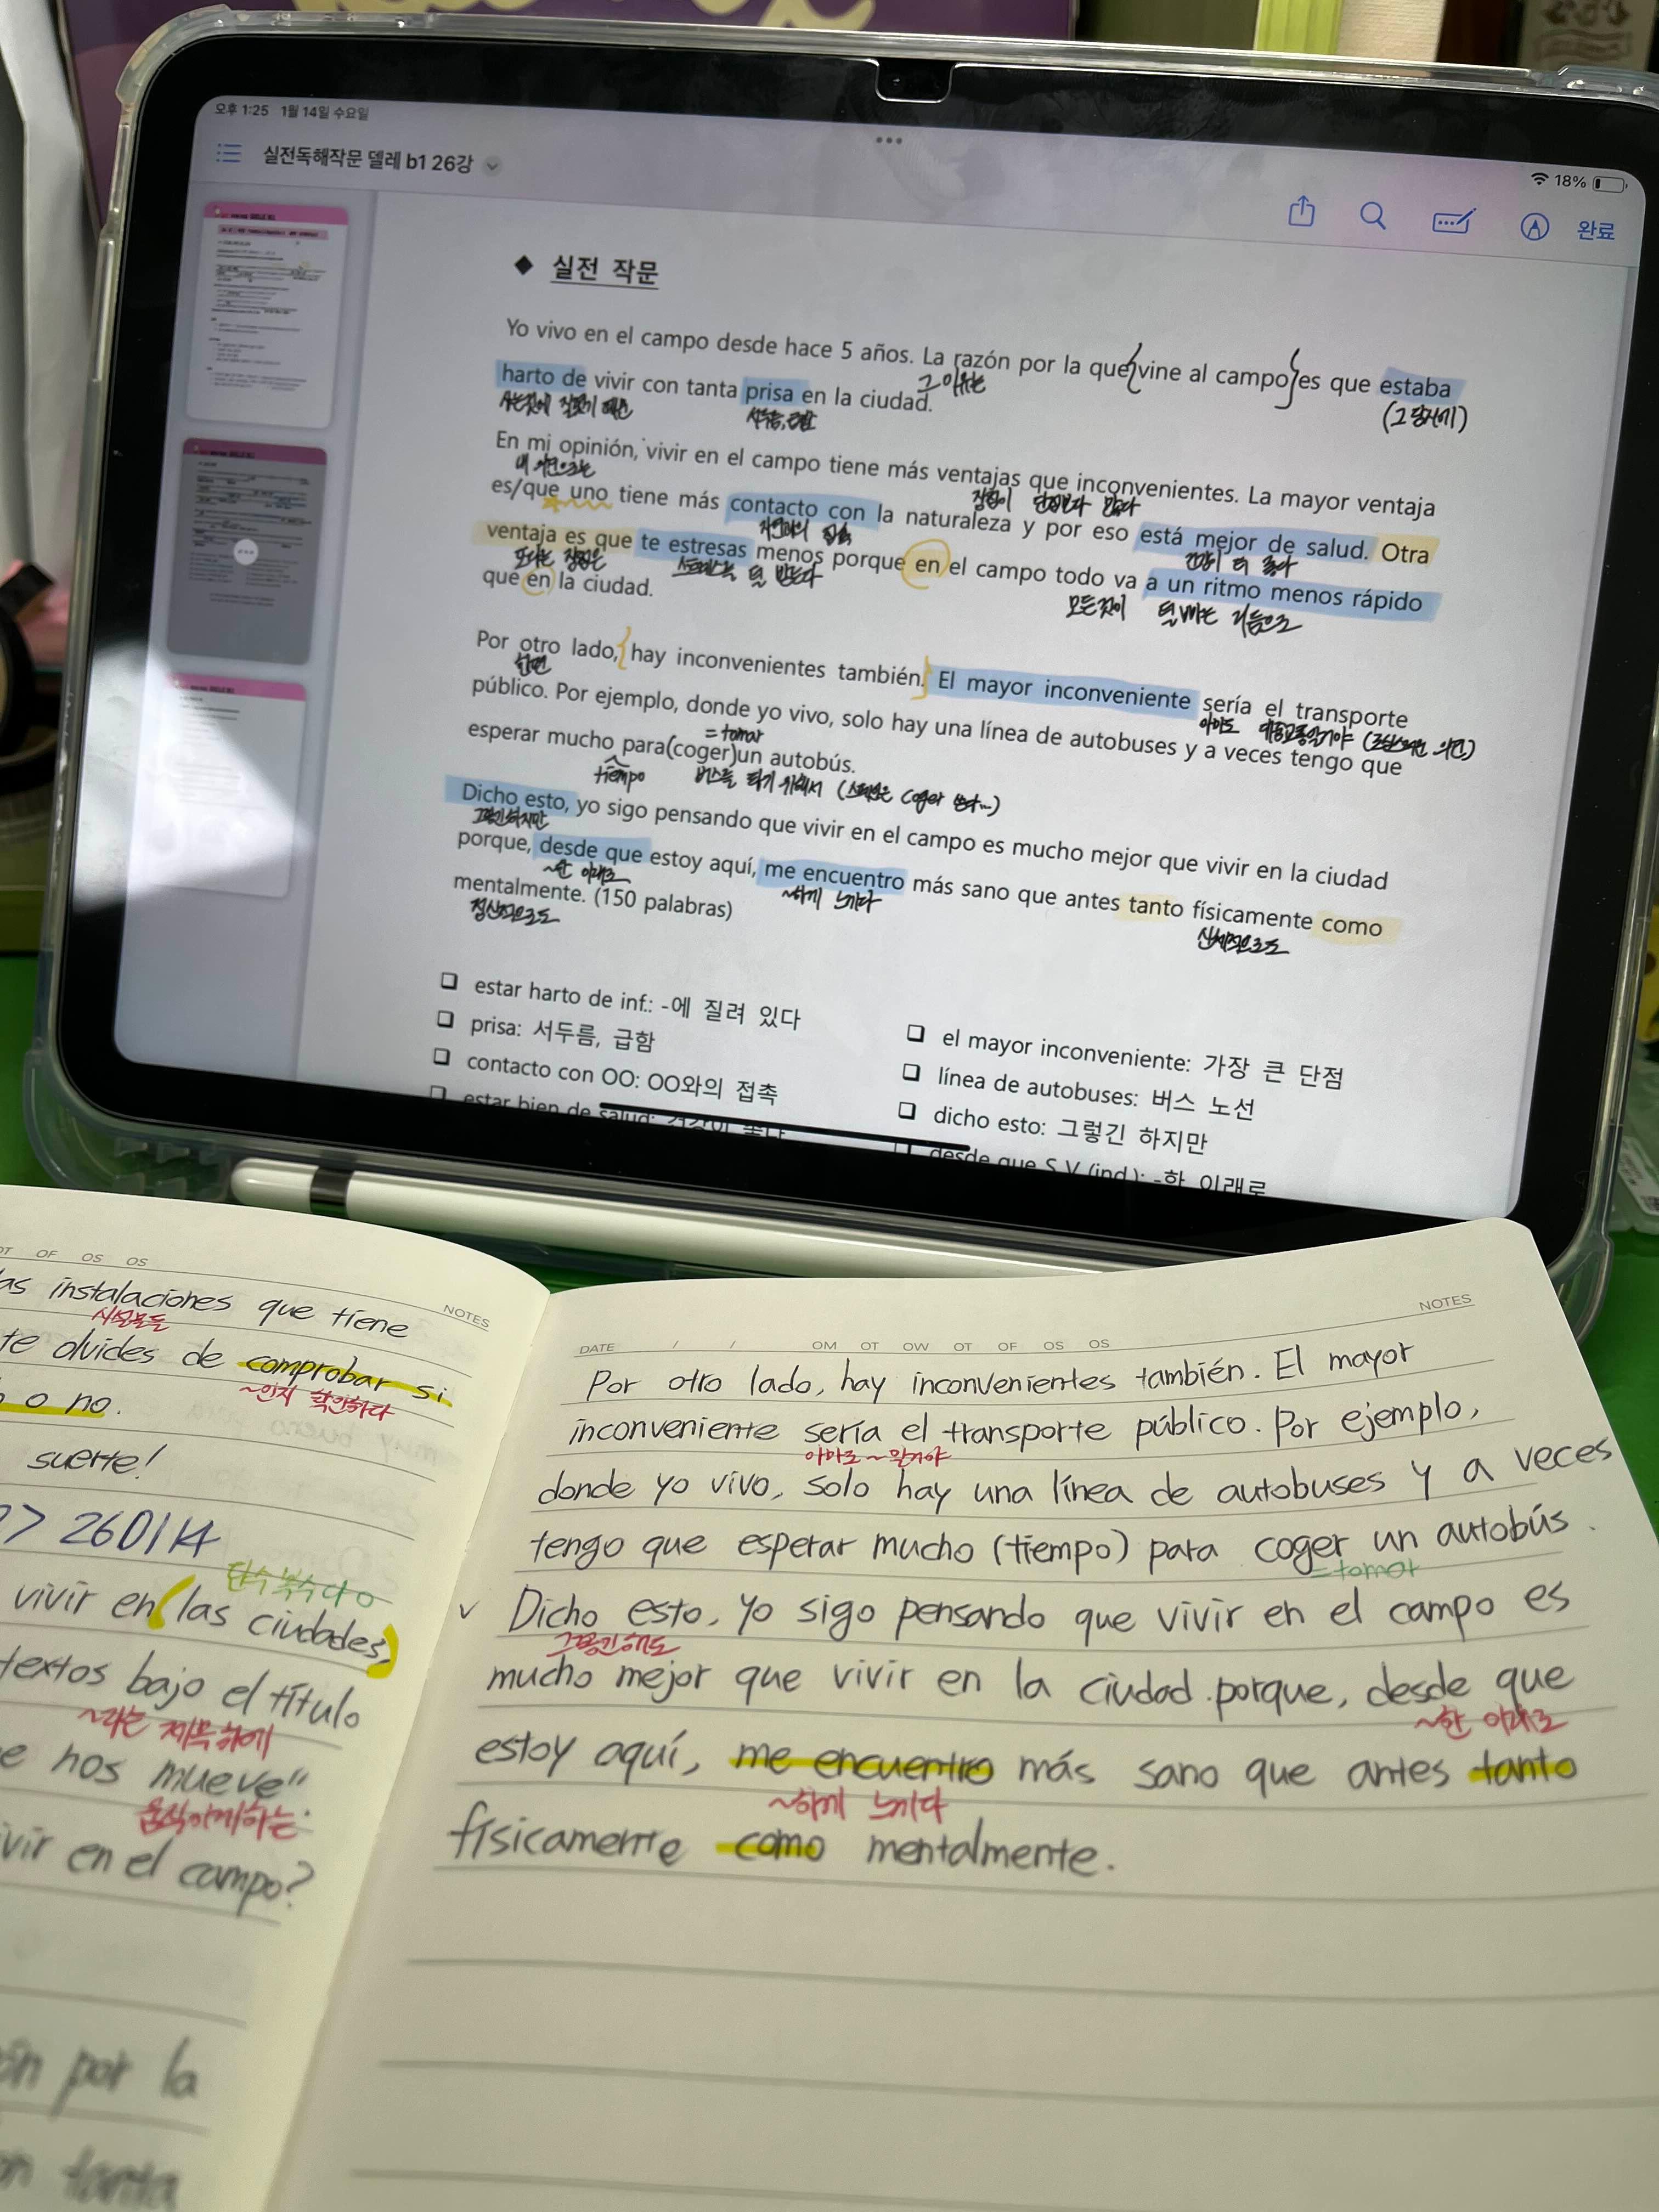 오후 1:25 1월 14일 수요일
18%
실전독해작문 델레 b1 26강
완료
◆ 실전 작문
Yo vivo en el campo desde hace 5 años. La razón por la que{vine al campo}es que estaba
그 이유는
(그 당시에)
harto de vivir con tanta prisa en la ciudad.
사는것에 질렸기 때문
서두름, 급함
En mi opinión, vivir en el campo tiene más ventajas que inconvenientes. La mayor ventaja
내 의견으로는
장점이 단점보다 많다
es/que uno tiene más contacto con la naturaleza y por eso está mejor de salud. Otra
자연과의 접촉
건강이 더 좋다
ventaja es que te estresas menos porque en el campo todo va a un ritmo menos rápido
또다른 장점은
스트레스를 덜 받는다
모든것이 덜 빠른 리듬으로
que en la ciudad.
Por otro lado,{hay inconvenientes también.}El mayor inconveniente sería el transporte
한편
아마도 대중교통일거야
público. Por ejemplo, donde yo vivo, solo hay una línea de autobuses y a veces tengo que
= tomar
esperar mucho para(coger)un autobús.
tiempo
버스를 타기 위해서 (스페인은 coger 쓴다...)
Dicho esto, yo sigo pensando que vivir en el campo es mucho mejor que vivir en la ciudad
그렇긴하지만
porque, desde que estoy aquí, me encuentro más sano que antes tanto físicamente como
~한 이래로
~하게 느끼다
신체적으로도
mentalmente. (150 palabras)
정신적으로도
❏ estar harto de inf.: -에 질려 있다
❏ prisa: 서두름, 급함
❏ contacto con OO: OO와의 접촉
❏ estar bien de salud: 건강이 좋다
❏ el mayor inconveniente: 가장 큰 단점
❏ línea de autobuses: 버스 노선
❏ dicho esto: 그렇긴 하지만
❏ desde que S V (ind.): -한 이래로
OT OF OS OS
NOTES
as instalaciones que tiene
시설물들
te olvides de comprobar si
~인지 확인하다
o no.
suerte!
> 260114
단수복수다 O
vivir en (las ciudades)
textos bajo el título
~라는 제목하에
e nos mueve"
움직이게하는
vivir en el campo?
ón por la
on tanta
DATE / / OM OT OW OT OF OS OS
NOTES
Por otro lado, hay inconvenientes también. El mayor
inconveniente sería el transporte público. Por ejemplo,
아마도 ~일거야
donde yo vivo, solo hay una línea de autobuses y a veces
tengo que esperar mucho (tiempo) para coger un autobús.
= tomar
✓ Dicho esto, yo sigo pensando que vivir en el campo es
그렇긴해도
mucho mejor que vivir en la ciudad porque, desde que
~한 이래로
estoy aquí, me encuentro más sano que antes tanto
~하게 느끼다
físicamente como mentalmente.